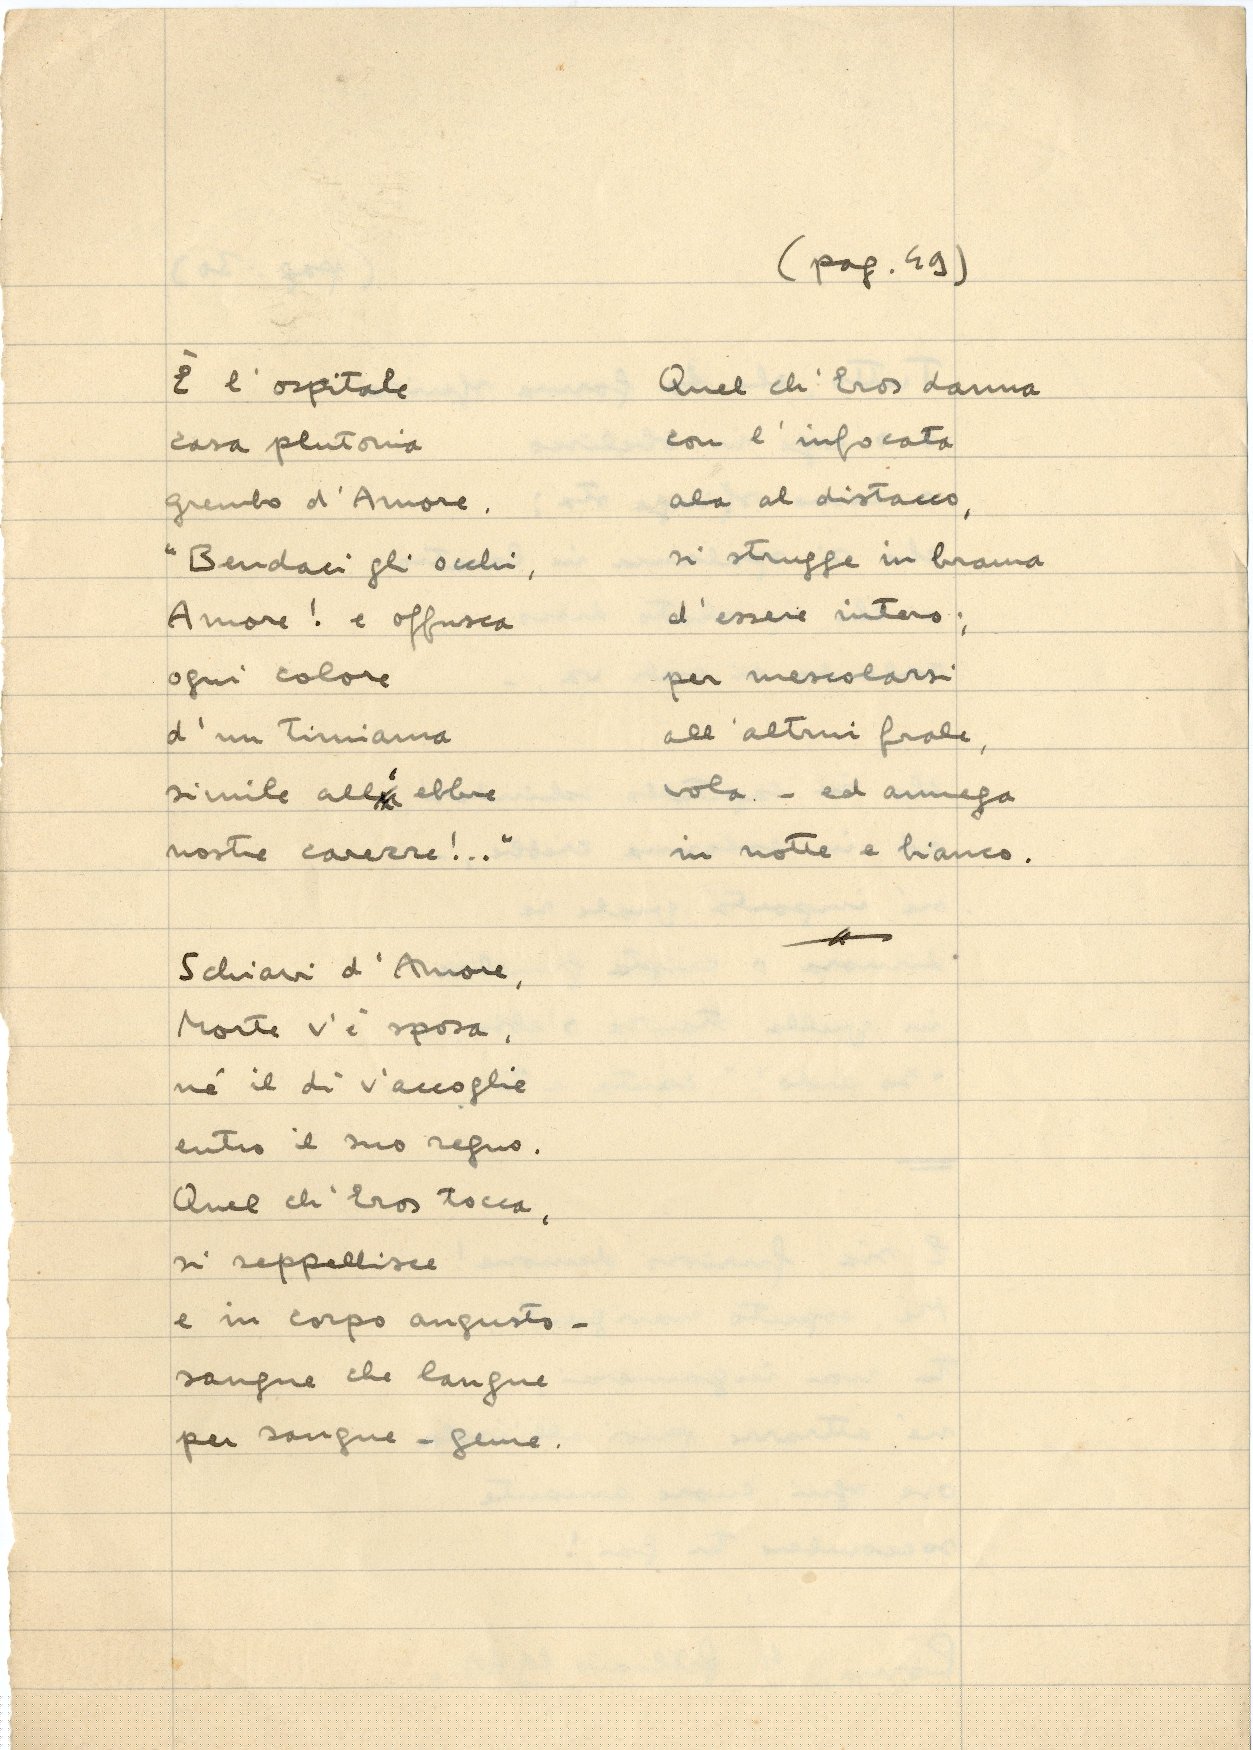 (pag. 49)
È l'ospitale
casa plutonia
grembo d'Amore.
"Bendaci gli occhi,
Amore! e offusca
ogni colore
d'un timiama
simile all' ebbre
nostre carezze!..."
Schiavi d'Amore,
Morte v'è sposa,
né il dì v'accoglie
entro il suo regno.
Quel ch'Eros tocca,
si seppellisce
e in corpo angusto -
sangue che langue
per sangue - geme.
Quel ch'Eros danna
con l'infocata
ala al distacco,
si strugge in brama
d'essere intero;
per mescolarsi
all'altrui frale,
vola - ed annega
in notte e bianco.